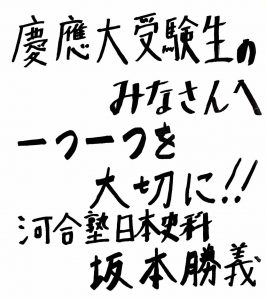 慶應大受験生の
みなさんへ
一つ一つを
大切に!!
河合塾日本史科
坂本勝義